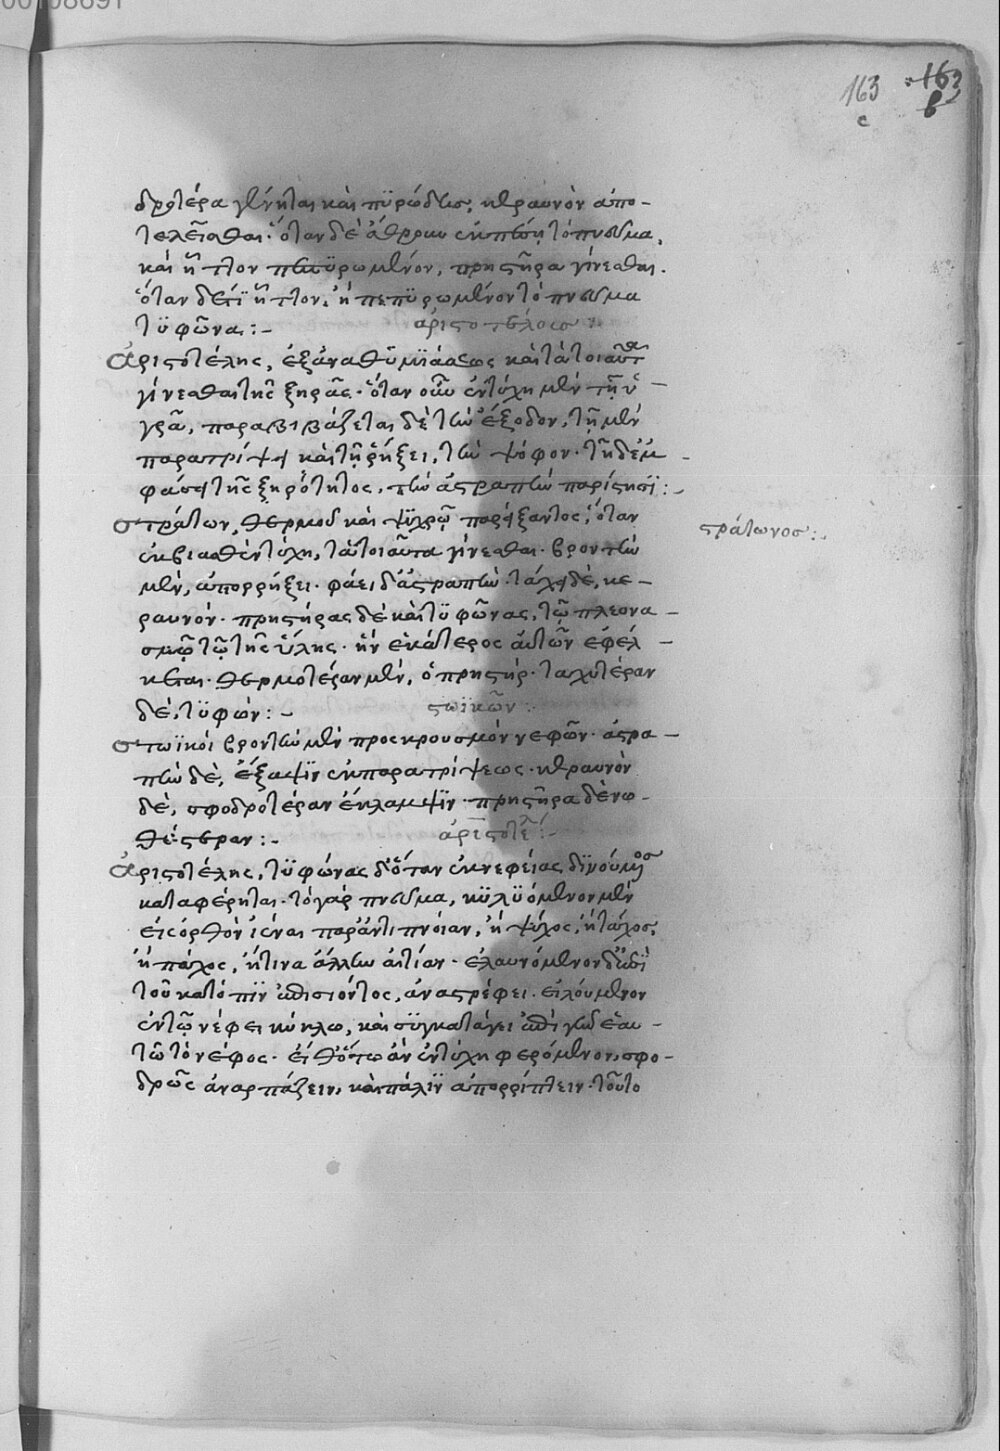 00108691
163
c
163
b
δροτέρα γένηται καὶ πϋρώδης, κεραυνὸν ἀπο-
τελεῖσθαι. ὅταν δὲ ἄθρουν ἐκπέσῃ τὸ πνεῦμα,
καὶ ἧττον πεπϋρωμένον, πρηστῆρα γίνεσθαι.
ὅταν δὲ ἔτι ἧττον ᾖ πεπϋρωμένον τὸ πνεῦμα
τϋφῶνα :-
ἀριστοτέλους :
Ἀριστοτέλης, ἐξ ἀναθϋμϊάσεως καὶ τὰ τοιαῦτα
γίνεσθαι τῆς ξηρᾶς. ὅταν οὖν ἐντύχῃ μὲν τῇ ὑ-
γρᾷ, παραβιβάζεται δὲ τὴν ἔξοδον, τῇ μὲν
παρατρίψει καὶ τῇ ῥήξει, τὸν ψόφον. τῇ δὲ ἐμ-
φάσει τῆς ξηρότητος, τὴν ἀστραπὴν παρίστησϊ :-
στράτων, θερμοῦ καὶ ψϋχροῦ παρείξαντος, ὅταν
ἐκβιασθὲν τύχῃ, τὰ τοιαῦτα γίνεσθαι. βροντὴν
μὲν, ἀπορρήξει. φάει δ' ἀστραπὴν. τάχει δὲ, κε-
ραυνόν. πρηστῆρας δὲ καὶ τϋφῶνας, τῷ πλεονα-
σμῷ τῷ τῆς ὕλης. ἣν ἑκάτερος αὐτῶν ἐφέλ-
κεται. θερμοτέραν μὲν, ὁ πρηστήρ. παχυτέραν
δὲ, τϋφών :-
στράτωνος :.
στωϊκῶν :-
στωϊκοὶ βροντὴν μὲν προσκρουσμὸν νεφῶν. ἀστρα-
πὴν δὲ, ἔξαψϊν ἐκ παρατρίψεως. κεραυνὸν
δὲ, σφοδροτέραν ἔκλαμψϊν. πρηστῆρα δὲ νω-
θέστεραν :-
ἀριστοτέ :-
Ἀριστοτέλης, τϋφώνας δ' ὅταν ἐκνεφείας δϊνούμενος
καταφέρηται. τὸ γὰρ πνεῦμα, κϋλϋόμενον μὲν
εἰς ὀρθὸν ἰέναι παρ' ἀντιπνόιαν, ἢ ψύχος, ἢ τάχος,
ἢ πάχος, ἤ τινα ἄλλην αἰτίαν. ἐλαυνόμενον δ' ὑπὸ
τοῦ κατόπϊν ἐπεισϊόντος, ἀναστρέφει. εἰλούμενον
ἐν τῷ νέφει κύκλῳ, καὶ σϋγκατάγει ἐπὶ γῆν ἑαυ-
τῷ τὸ νέφος. εἴθ' ὅτῳ ἂν ἐντύχῃ φερόμενον, σφο-
δρῶς ἀναρπάζειν, καὶ πάλϊν ἀπορρίπτειν. τοῦτο